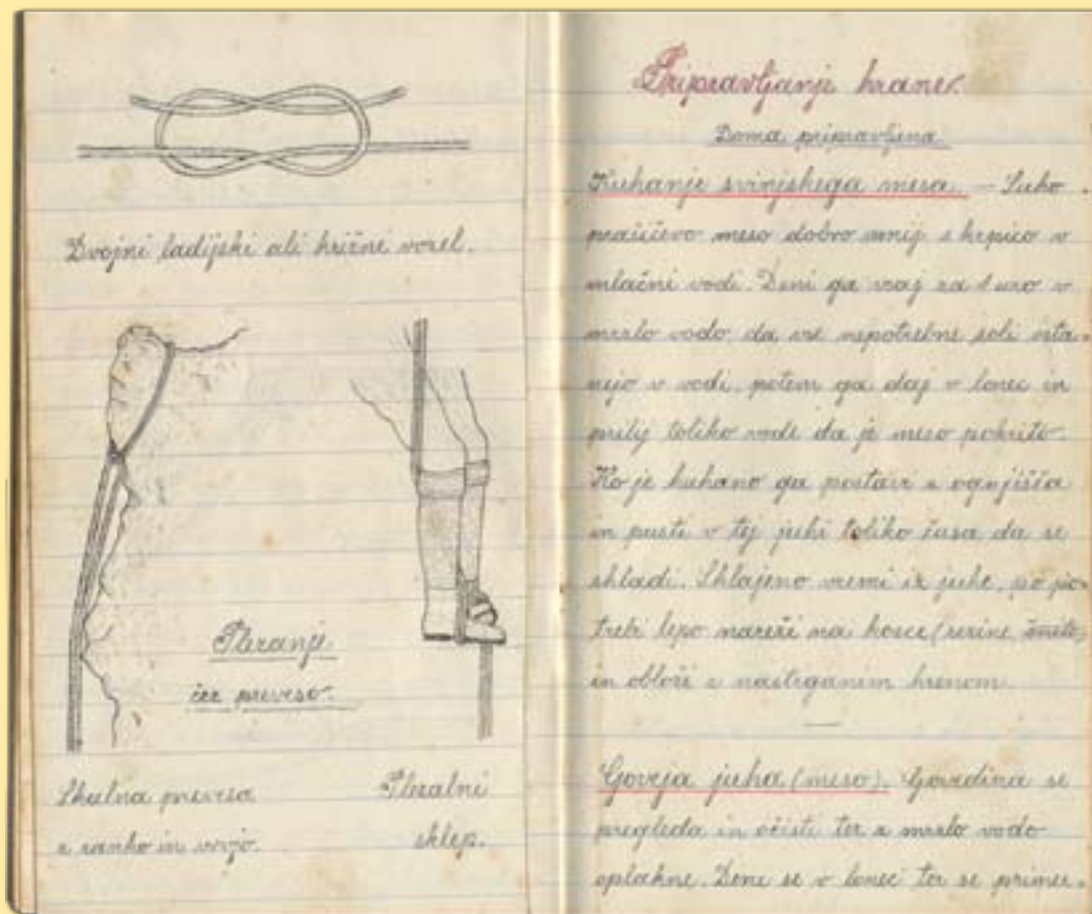 Dvojni ladijski ali križni vozel.
Plezanje
čez preveso.
Skalna prevesa
z zanko in vrvjo.
Plezalni
sklep.
Pripravljanje hrane.
Doma pripravljena
Kuhanje svinjskega mesa. — Suho
prašičevo meso dobro umij s krpico v
mlačni vodi. Deni ga vsaj za 1 uro v
mrzlo vodo da vse nepotrebne soli osta-
nejo v vodi, potem ga daj v lonec in
prilij toliko vode da je meso pokrito.
Ko je kuhano ga postavi z ognjišča
in pusti v tej juhi toliko časa da se
shladi. Shlajeno vzemi iz juhe, po po-
trebi lepo nareži na kosce (rezine
in obloži z nastrganim hrenom.
Goveja juha (meso). Govedina se
pregleda in očisti ter z mrzlo vodo
oplakne. Dene se v lonec ter se primer-